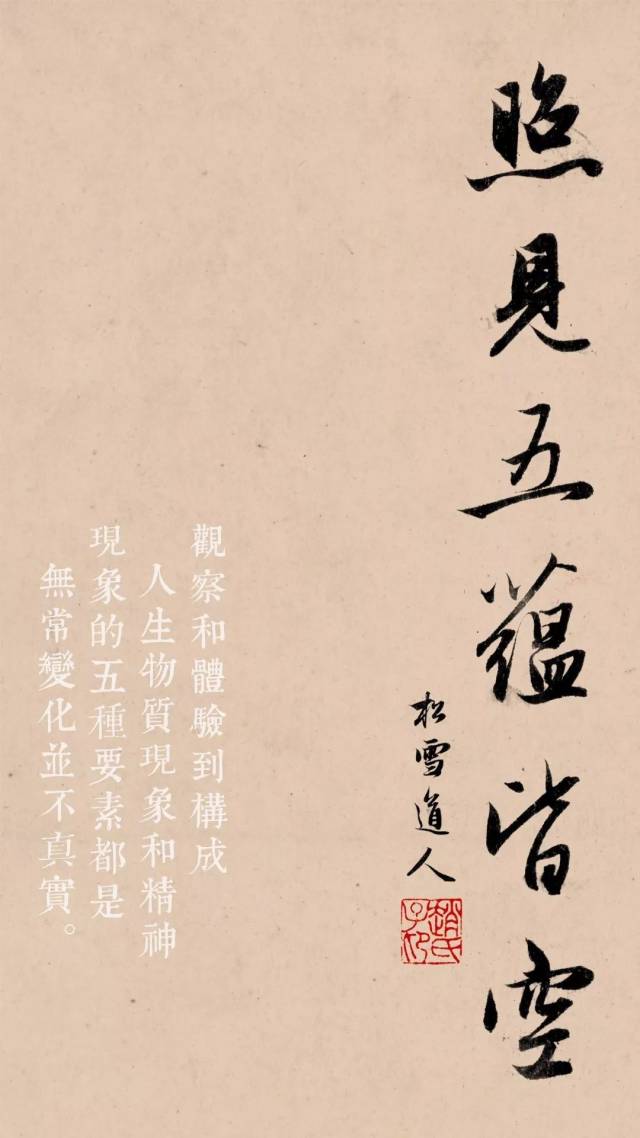 照見五蘊皆空
松雪道人
趙氏子昂
觀察和體驗到構成
人生物質現象和精神
現象的五種要素都是
無常變化並不真實。